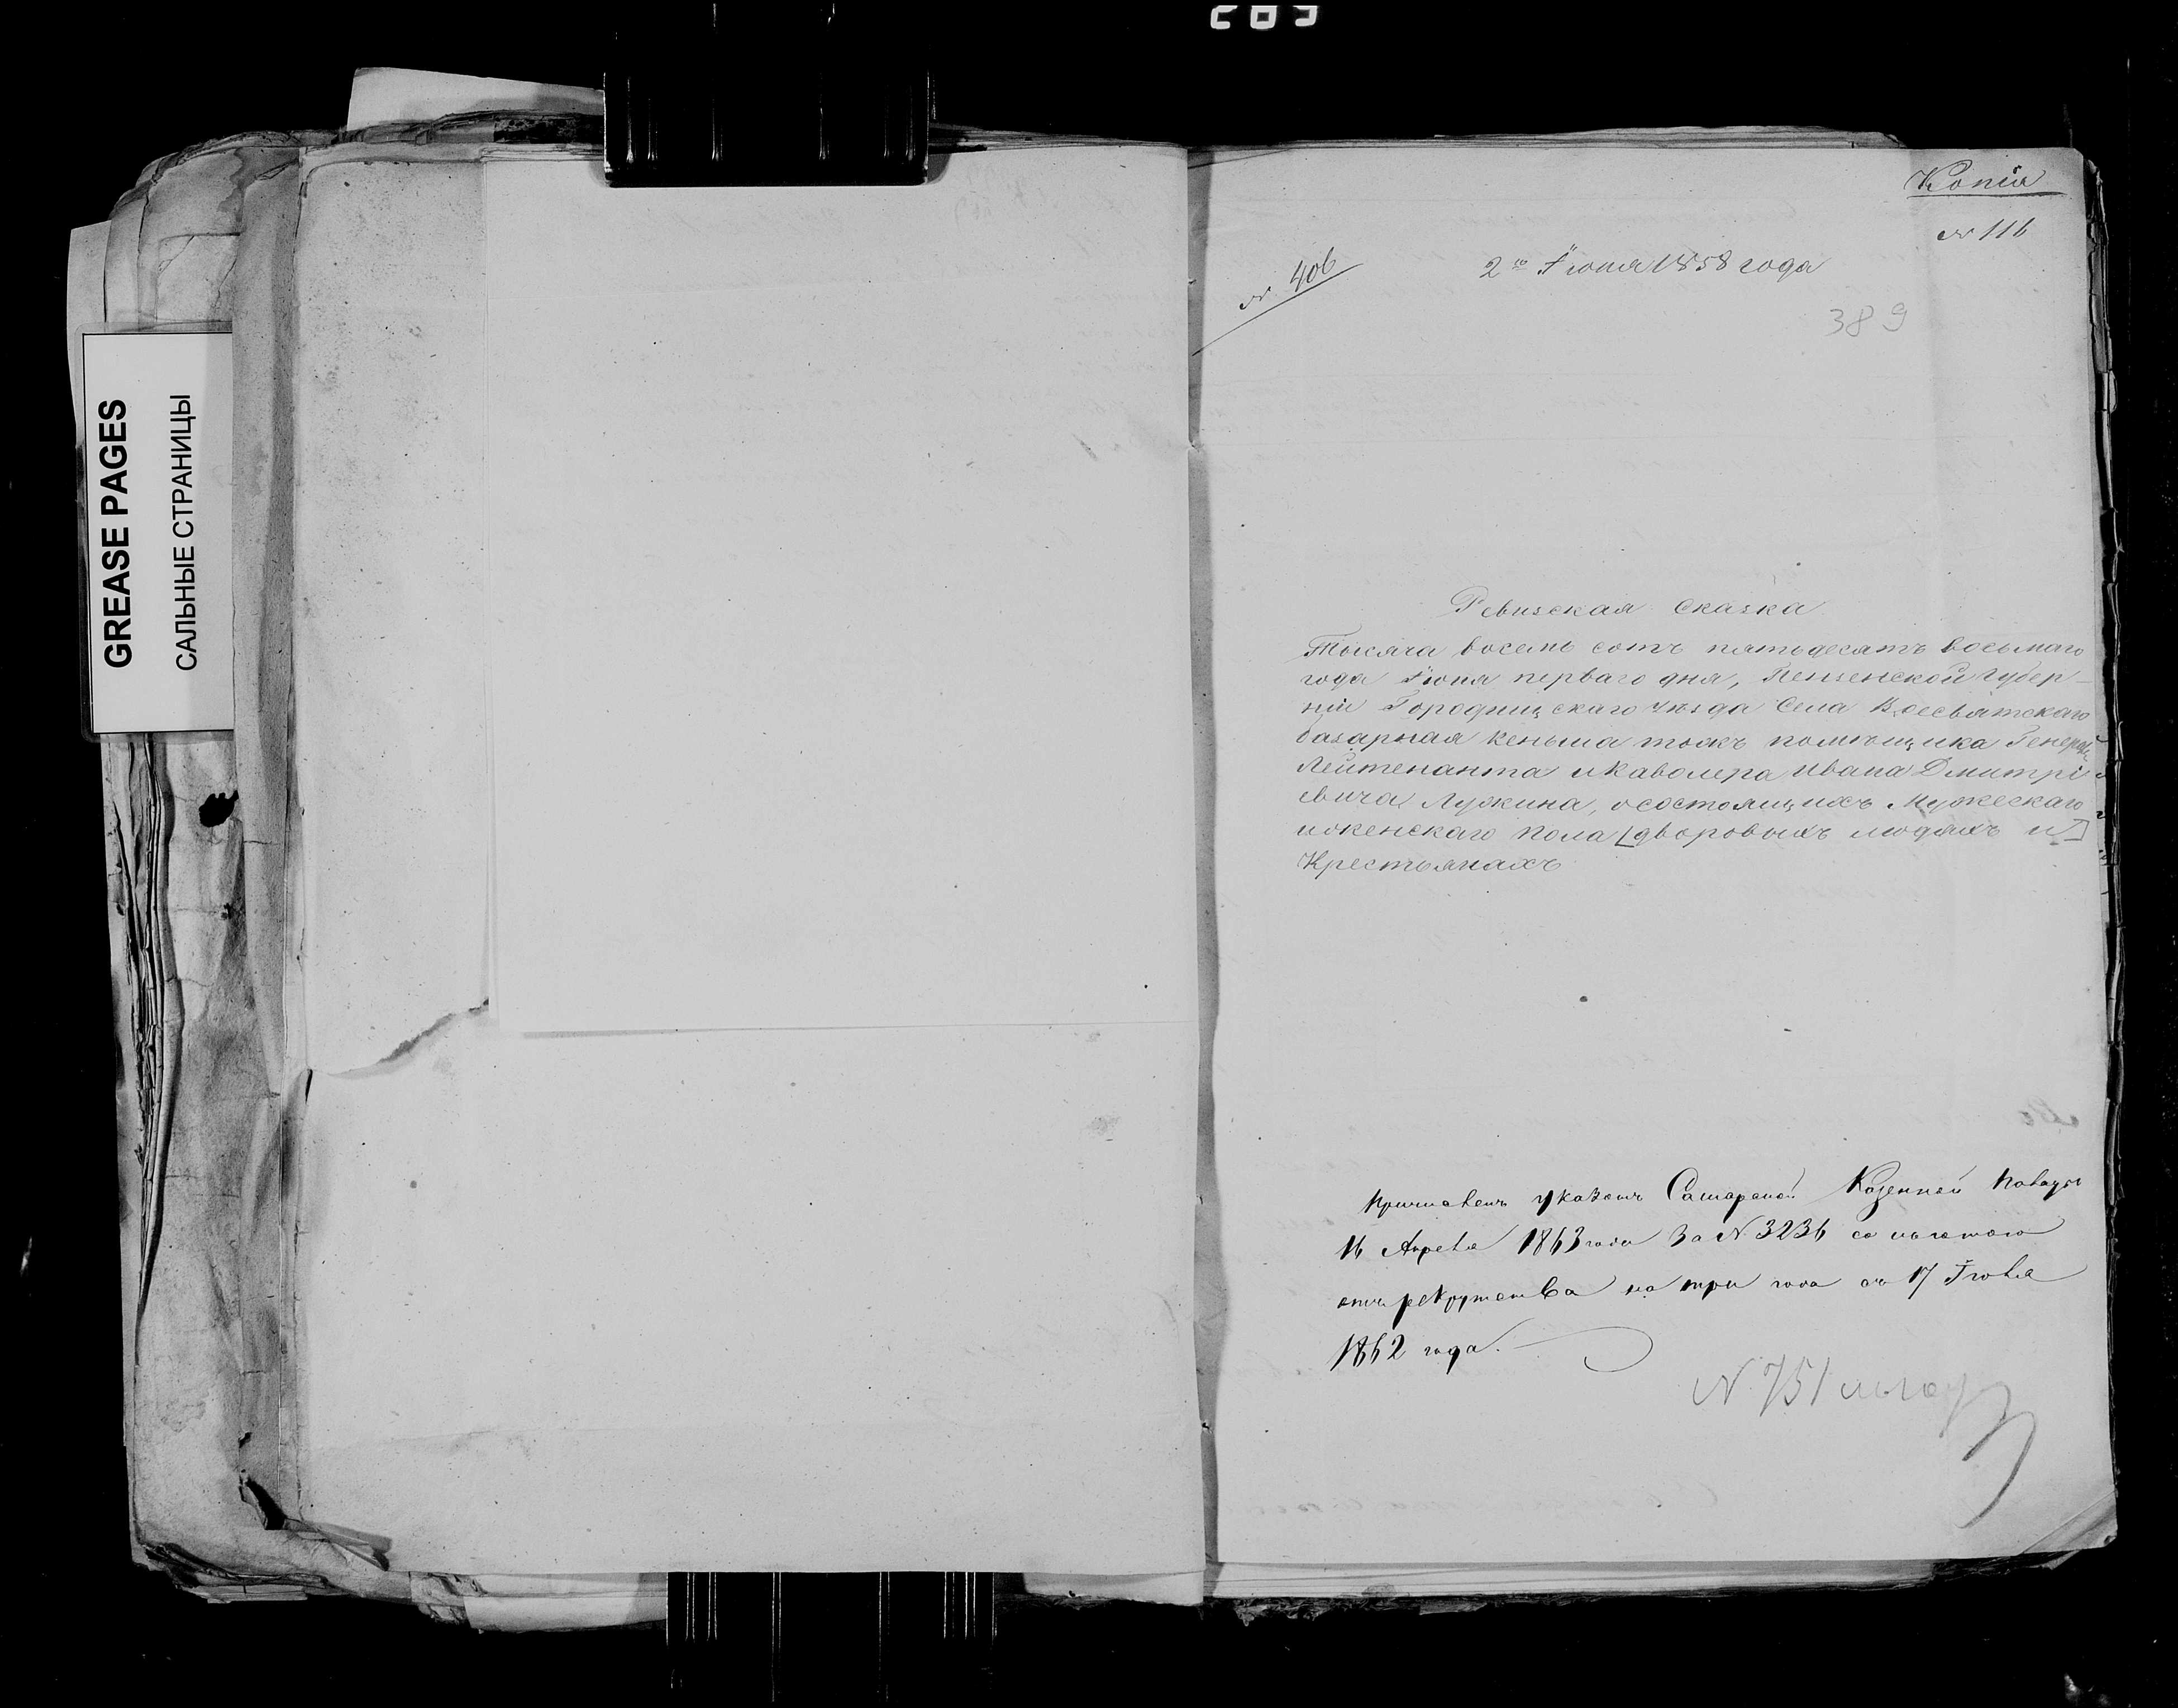 GREASE PAGES
САЛЬНЫЕ СТРАНИЦЫ
Копія
№ 116
№ 406
2го Іюня 1858 года
389
Ревизская сказка
Тысяча восемь сотъ пятьдесятъ восьмаго
года Іюня перваго дня, Пензенской Губер-
ніи Городищскаго уѣзда Села Всесвятскаго
базарная Кеньша тожъ помѣщика Генералъ
Лейтенанта и Кавалера Ивана Дмитрі
евича Лужина, о состоящихъ Мужескаго
и женскаго пола [дворовыхъ людяхъ и]
Крестьянахъ
Причислены указомъ Самарской Казенной Палаты
16 Апреля 1863 года За № 3236 со льготою
отъ рекрутства на три года съ 17 Іюля
1862 года.
№ 751